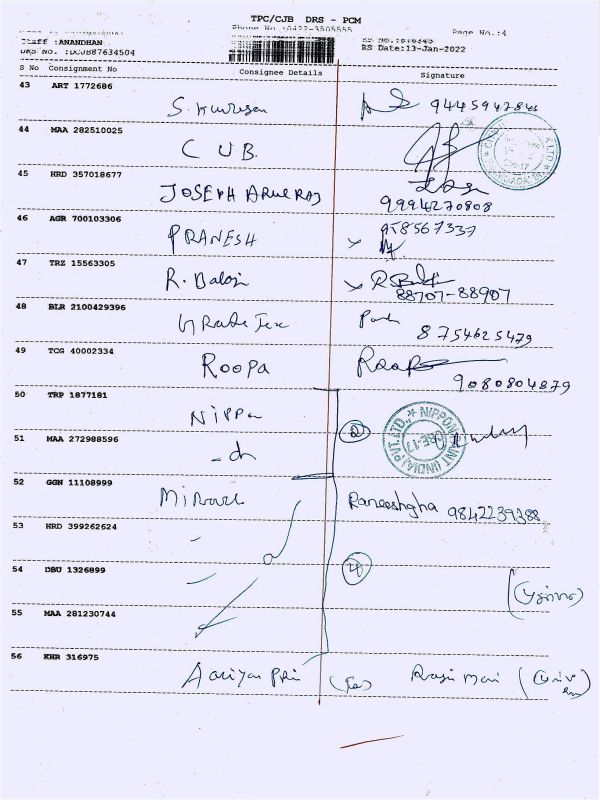 TPC/CJB DRS - PCM
Phone No.:0422-3505555
Page No.:4
Staff :ANANDHAN
DRS No. :DCJB87634504
RS Date:13-Jan-2022
S No Consignment No Consignee Details Signature
43 ART 1772686
S. 9445947844
44 MAA 282510025
C U B.
45 HRD 357018677
JOSEPH ARUL RAJ 9994270808
46 AGR 700103306
PRANESH 958567337
47 TRZ 15563305
R. Balaji 88707-88907
48 BLR 2100429396
8754625479
49 TCG 40002334
ROOPA Roopa 9080804879
50 TRP 1877181
Nippon 2
NIPPON PAINT (INDIA) PVT. LTD.,
CBE-17
51 MAA 272988596
- do
52 GGN 11108999
Raneeshgha 9842239388
53 HRD 399262624
54 DBU 1326899
4
55 MAA 281230744
56 KHR 316975